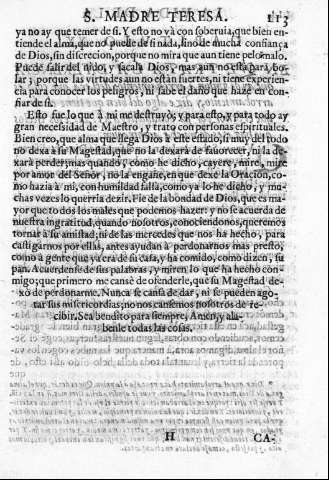 S. MADRE TERESA. 113
ya no ay que temer de sì. Y esto no và con soberuia, que bien en-
tiende el alma, que no puede de si nada, sino de mucha confiança
de Dios, sin discrecion, porque no mira que aun tiene pelo malo.
Puede salir del nido, y sacala Dios, mas aun no està para bo-
lar; porque las virtudes aun no estàn fuertes, ni tiene experien-
cia para conocer los peligros, ni sabe el daño que haze en con-
fiar de sì.
Esto fue lo que à mi me destruyò; y para esto, y para todo ay
gran necesidad de Maestro, y trato con personas espirituales.
Bien creo, que alma que llega Dios à este estado, si muy del todo
no dexa à su Magestad, que no la dexarà de fauorecer, ni la de-
xarà perder; mas quando, como he dicho, cayere, mire, mire
por amor del Señor, no la engañe, en que dexe la Oracion, co-
mo hazia à mi, con humildad falsa, como ya lo he dicho, y mu-
chas vezes lo querria dezir. Fie de la bondad de Dios, que es ma-
yor que todos los males que podemos hazer; y no se acuerda de
nuestra ingratitud, quando nosotros, conociendonos, queremos
tornar à su amistad, ni de las mercedes que nos ha hecho, para
castigarnos por ellas, antes ayudan à perdonarnos mas presto;
como à gente que ya era de su casa, y ha comido, como dizen, su
pan. Acuerdense de sus palabras, y miren lo que ha hecho con-
migo; que primero me cansè de ofenderle, que su Magestad de-
xò de perdonarme. Nunca se cansa de dar, ni se pueden ago-
tar sus misericordias; no nos cansemos nosotros de re-
cibir. Sea bendito para siempre, Amen, y ala-
benle todas las cosas.
H CA-